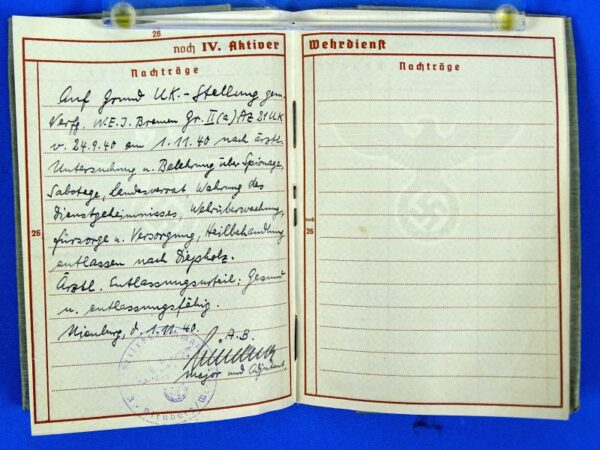 26
noch IV. Aktiver Wehrdienst
Nachträge
Auf Grund UK.-Stellung gem.
Verfg. W.E.I. Bremen Gr. II(a) AZ 21 UK
v. 24.9.40 am 1.11.40 nach ärztl.
Untersuchung u. Belehrung über Spionage,
Sabotage, Landesverrat Wahrung des
Dienstgeheimnisses, Wehrüberwachung,
Fürsorge u. Versorgung, Heilbehandlung
26
entlassen nach Diepholz.
Ärztl. Entlassungsurteil: Gesund
u. entlassungsfähig.
Nienburg, d. 1.11.40.
I.A.B.
Major und Adjutant.
Nienburg
Nachträge
noch
26